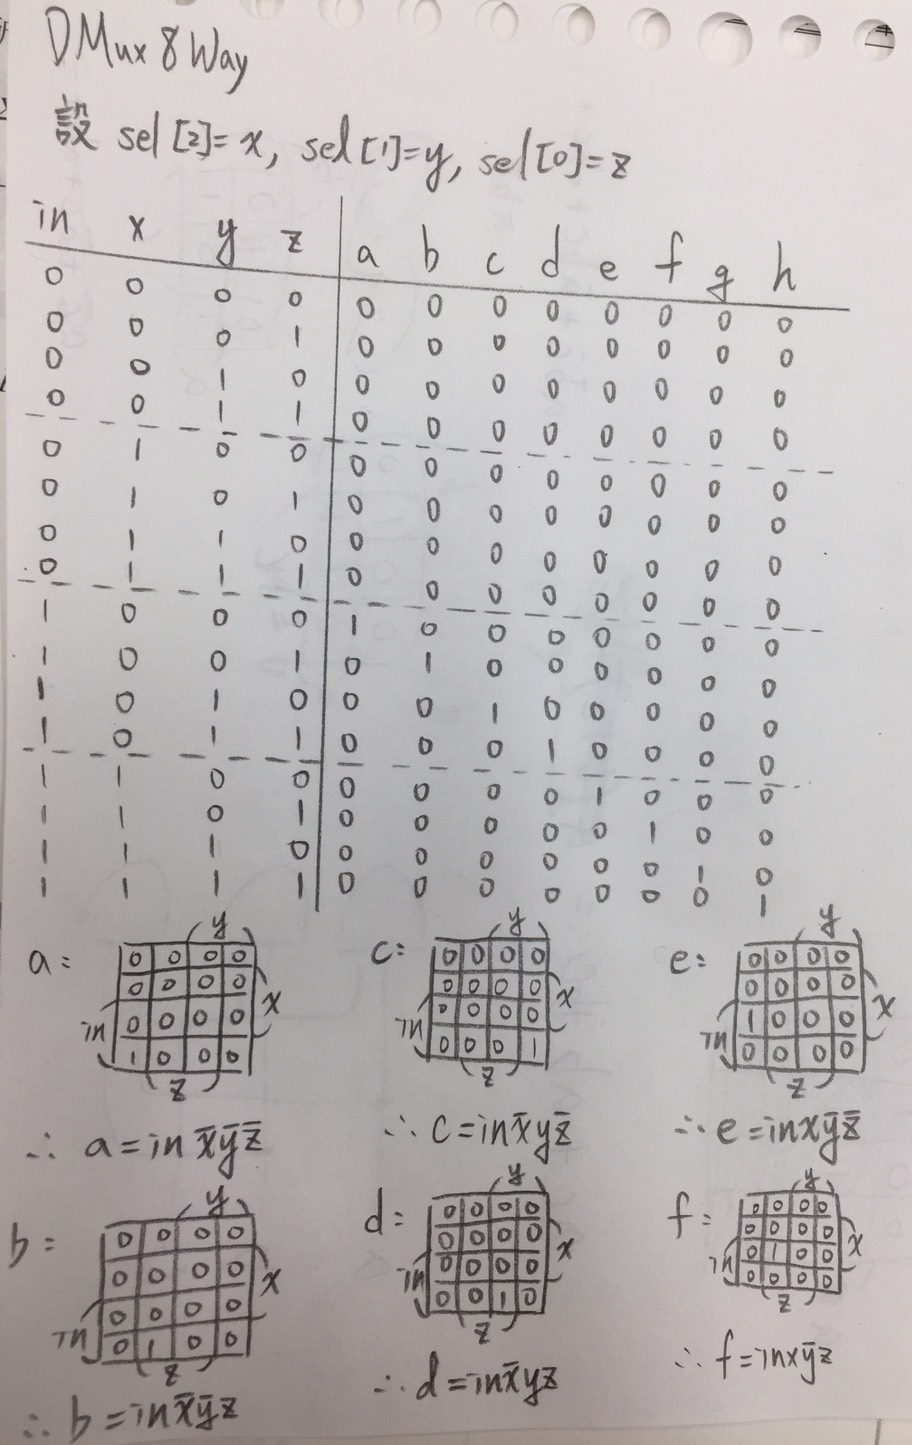 DMux 8 Way
設 sel [2]= x, sel [1]=y, sel[0]=z
in x y z a b c d e f g h
0 0 0 0 0 0 0 0 0 0 0 0
0 0 0 1 0 0 0 0 0 0 0 0
0 0 1 0 0 0 0 0 0 0 0 0
0 0 1 1 0 0 0 0 0 0 0 0
0 1 0 0 0 0 0 0 0 0 0 0
0 1 0 1 0 0 0 0 0 0 0 0
0 1 1 0 0 0 0 0 0 0 0 0
0 1 1 1 0 0 0 0 0 0 0 0
1 0 0 0 1 0 0 0 0 0 0 0
1 0 0 1 0 1 0 0 0 0 0 0
1 0 1 0 0 0 1 0 0 0 0 0
1 0 1 1 0 0 0 1 0 0 0 0
1 1 0 0 0 0 0 0 1 0 0 0
1 1 0 1 0 0 0 0 0 1 0 0
1 1 1 0 0 0 0 0 0 0 1 0
1 1 1 1 0 0 0 0 0 0 0 1
a=
y
0 0 0 0
0 0 0 0
x
in
0 0 0 0
1 0 0 0
z
∴ a=in x̄ȳz̄
c=
y
0 0 0 0
0 0 0 0
x
in
0 0 0 0
0 0 0 1
z
∴ c=inx̄yz̄
e=
y
0 0 0 0
0 0 0 0
x
in
1 0 0 0
0 0 0 0
z
∴ e=inxȳz̄
b=
y
0 0 0 0
0 0 0 0
x
0 0 0 0
in
0 1 0 0
z
∴ b=inx̄ȳz
d=
y
0 0 0 0
0 0 0 0
x
in
0 0 0 0
0 0 1 0
z
∴ d=inx̄yz
f=
y
0 0 0 0
0 0 0 0
x
in
0 1 0 0
0 0 0 0
z
∴ f=inxȳz